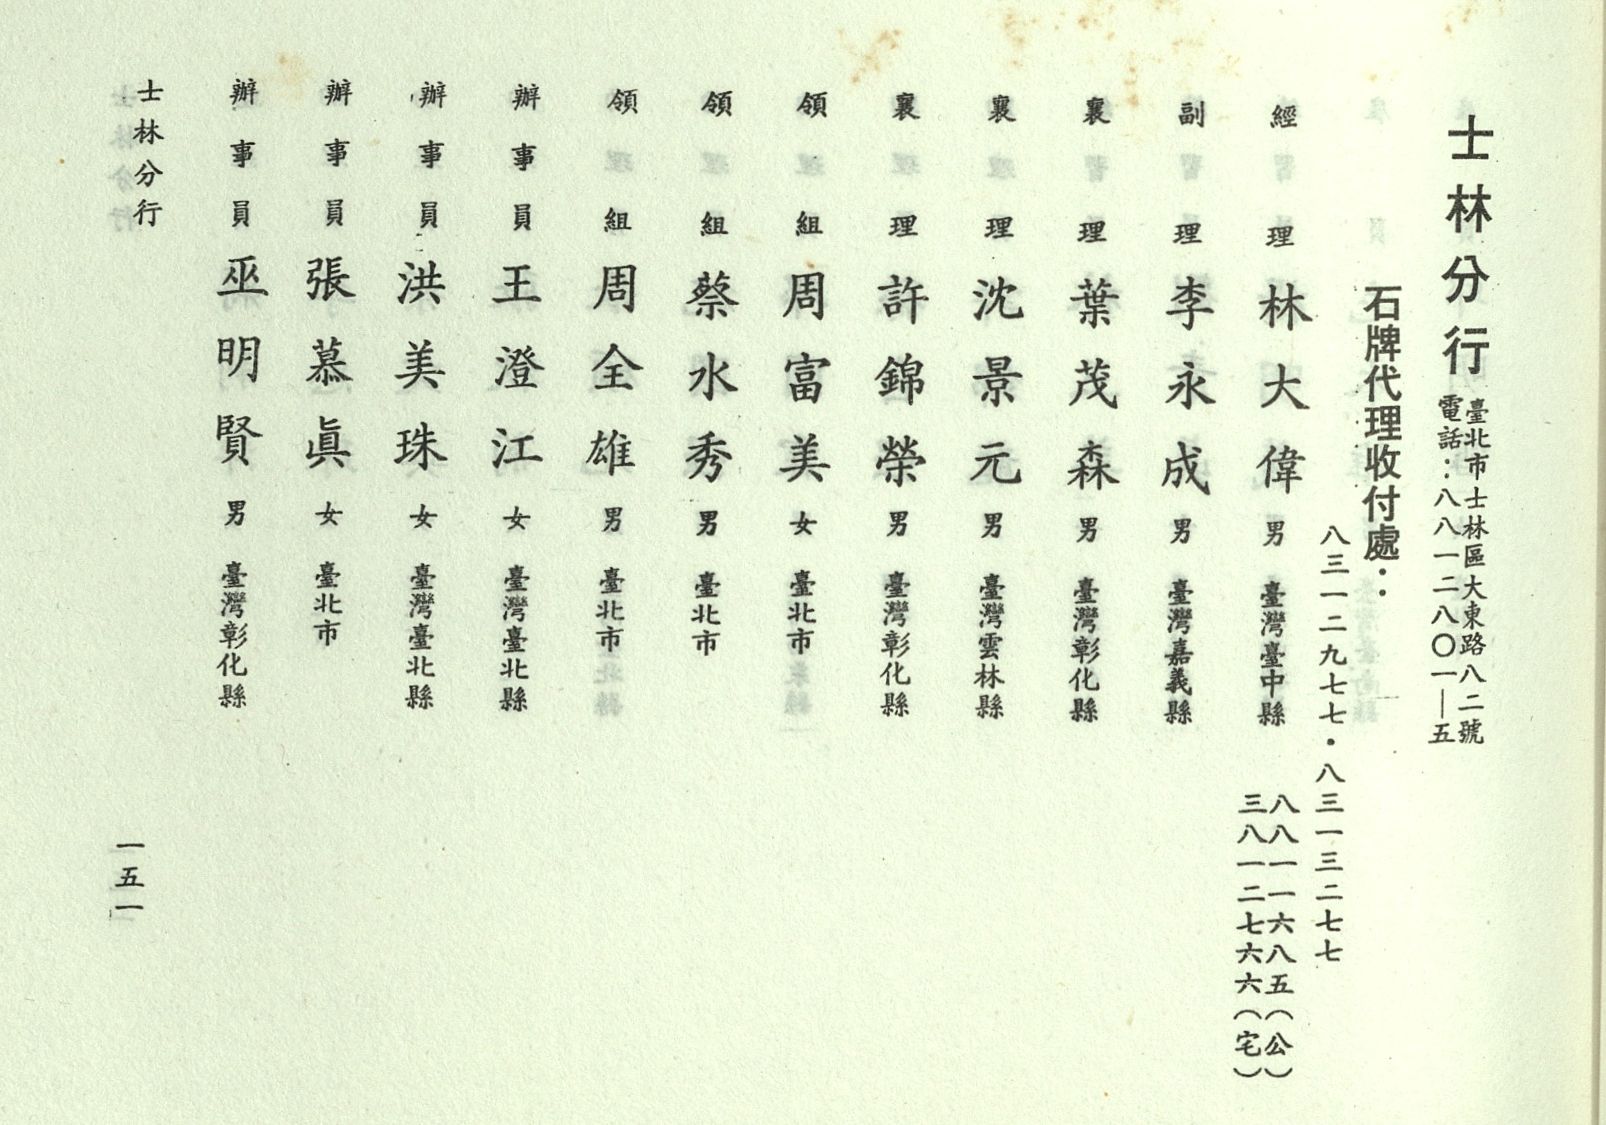 士林分行
臺北市士林區大東路八二號
電話：八八一二八〇一—五
石牌代理收付處：
八三一二九七七・八三一三二七七
經理 林大偉 男 臺灣臺中縣
八八一一六八五（公）
三八一二七六六（宅）
副理 李永成 男 臺灣嘉義縣
襄理 葉茂森 男 臺灣彰化縣
襄理 沈景元 男 臺灣雲林縣
襄理 許錦榮 男 臺灣彰化縣
領組 周富美 女 臺北市
領組 蔡水秀 男 臺北市
領組 周全雄 男 臺北市
辦事員 王澄江 女 臺灣臺北縣
辦事員 洪美珠 女 臺灣臺北縣
辦事員 張慕眞 女 臺北市
辦事員 巫明賢 男 臺灣彰化縣
士林分行
一五一